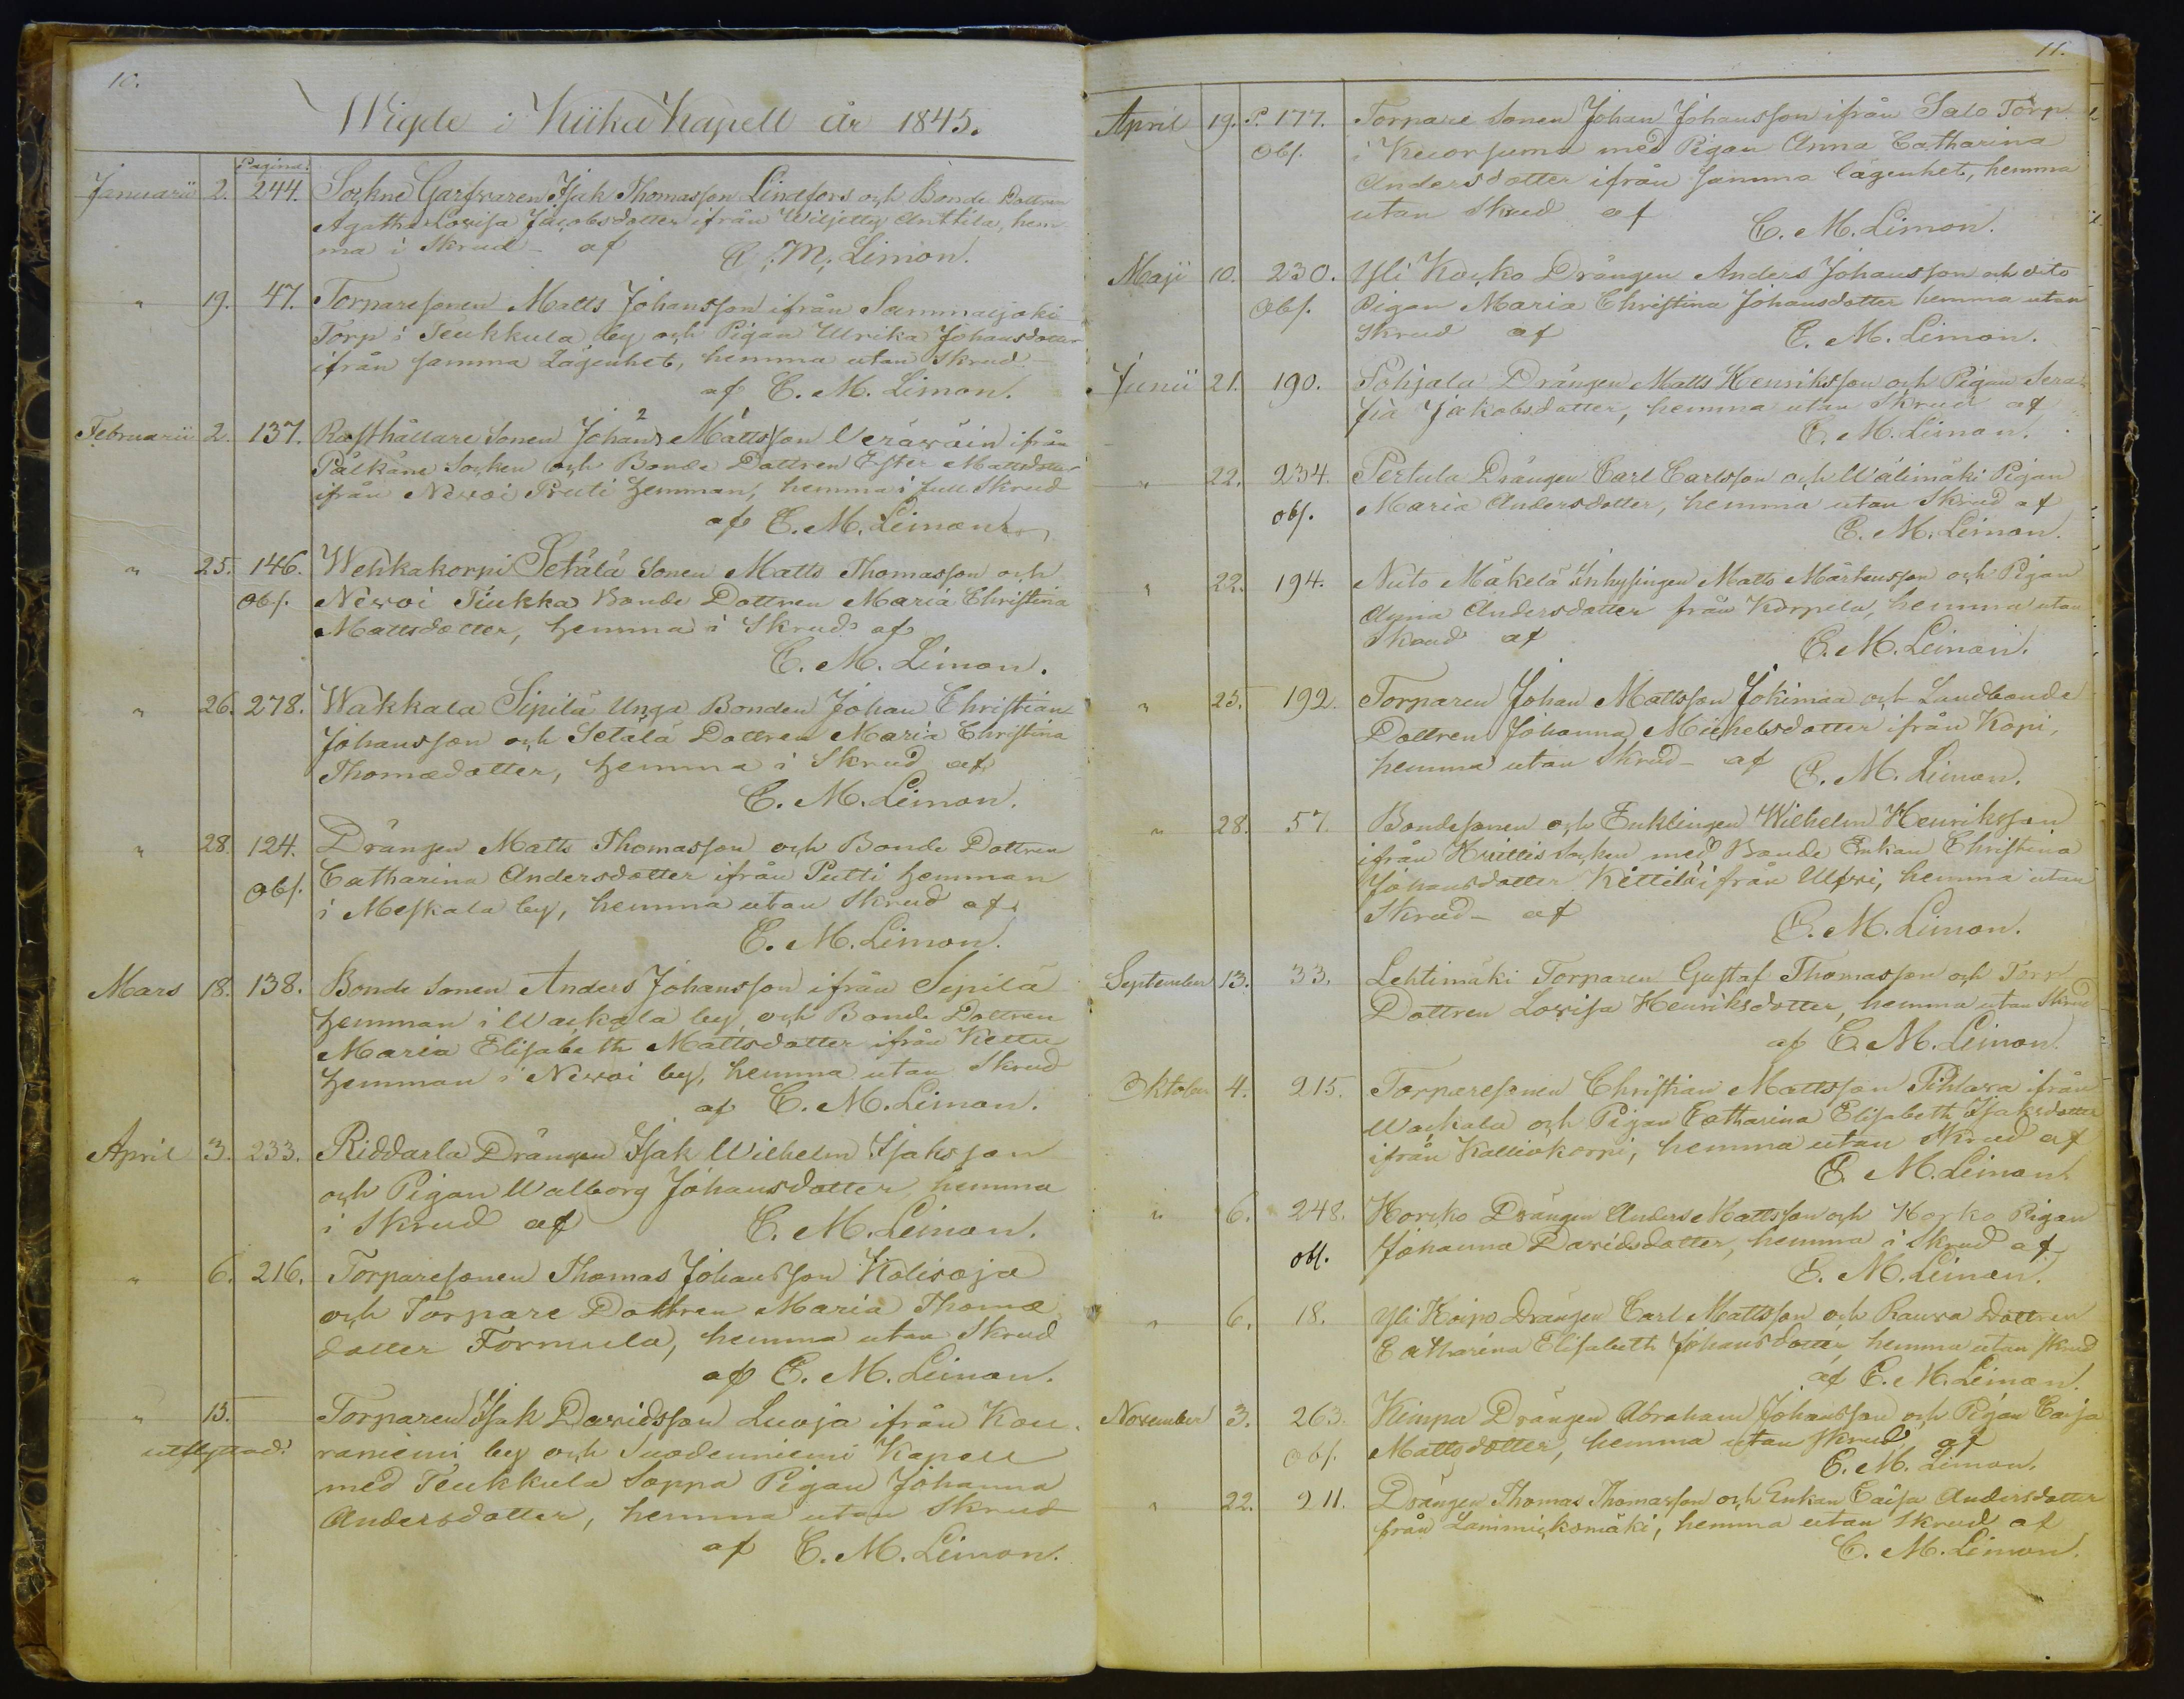 10.
Wigde i Kiika Kapell år 1845.
Pagina:
Januarii 2. 244. Sockne Garfvaren Isak Thomasson Lindfors och Bonde Dottren
Agatha Lovisa Jacobsdotter ifrån Anttila, hem-
ma i Skrud af C. M. Limon.
" 19. 47. Torparesonen Matts Johansson ifrån Sammaljoki
Torp i Teukkula by och Pigan Ulrika Johansdotter
ifrån samma Lägenhet, hemma utan Skrud
af C. M. Limon.
Februarii 2. 137. Rusthållare Sonen Johan Mattsson Veräväin ifrån
Pälkäne Socken och Bonde Dottren Ester Mattsdotter
ifrån Nevoi Pruti hemman, hemma i full Skrud
af C. M. Limon.
" 25. 146. Wehkakorpi Setälä Sonen Matts Thomasson och
obs. Nevoi Tiukka Bonde Dottren Maria Christina
Mattsdotter, hemma i Skrud af
C. M. Limon.
" 26. 278. Wakkala Sipilä Unga Bonden Johan Christian
Johansson och Setälä Dottren Maria Christina
Thomædotter, hemma i Skrud af
C. M. Limon.
" 28. 124. Drängen Matts Thomasson och Bonde Dottren
obs. Catharina Andersdotter ifrån Putti hemman
i Meskala by, hemma utan Skrud af
C. M. Limon.
Mars 18. 138. Bonde Sonen Anders Johansson ifrån Sipilä
hemman i Wackala by och Bonde Dottren
Maria Elisabeth Mattsdotter ifrån Kettu
hemman i Nevoi by, hemma utan Skrud
af C. M. Limon.
April 3. 233. Riddarla Drängen Isak Wilhelm Isaksson
och Pigan Walborg Johansdotter hemma
i Skrud af C. M. Limon.
" 6. 216. Torparesonen Thomas Johansson Kalisoja
och Torpare Dottren Maria Thomæ
dotter Formula, hemma utan Skrud
af C. M. Limon.
" 15. Torparen Isak Davidsson Luoja ifrån Kou-
utflyttad! raniemi by och Suodenniemi Kapell
med Teukkula Soppa Pigan Johanna
Andersdotter, hemma utan Skrud
af C. M. Limon.
11.
April 19. P. 177. Torpare Sonen Johan Johansson ifrån Salo Torp
obs. i Kuorsuma med Pigan Anna Catharina
Andersdotter ifrån samma lägenhet, hemma
utan Skrud af C. M. Limon.
Maji 10. 230. Yli Kocko Drängen Anders Johansson och dito
obs. Pigan Maria Christina Johansdotter hemma utan
Skrud af C. M. Limon.
Junii 21. 190. Pohjala Drängen Matts Henriksson och Pigan Sera-
fia Jakobsdotter, hemma utan Skrud af
C. M. Limon.
" 22. 234. Pertula Drängen Carl Carlsson och Wälimäki Pigan
obs. Maria Andersdotter, hemma utan Skrud af
C. M. Limon.
" 22. 194. Nuto Mäkelä Inhysingen Matts Mårtensson och Pigan
Anna Andersdotter från Korpela, hemma utan
Skrud af C. M. Limon.
" 25. 192. Torparen Johan Mattsson Jokimaa och Landbonde
Dottren Johanna Michelsdotter ifrån Kopi,
hemma utan Skrud af C. M. Limon.
" 28. 57. Bondesonen och Enklingen Wilhelm Henriksson
ifrån Huittis Socken med Bonde Enkan Christina
Johansdotter Kittilä ifrån Ulvi, hemma utan
Skrud af C. M. Limon.
September 13. 33. Lehtimäki Torparen Gustaf Thomasson och Torp
Dottren Lovisa Henriksdotter, hemma utan Skrud
af C. M. Limon.
Oktober 4. 215. Torparesonen Christian Mattsson Pihlava ifrån
Wackala och Pigan Catharina Elisabeth Isaksdotter
ifrån Kalliokorpi, hemma utan Skrud af
C. M. Limon.
" 6. 248. Korcko Drängen Anders Mattsson och Korko Pigan
obs. Johanna Davidsdotter, hemma i Skrud af
C. M. Limon.
" 6. 18. Yli Koipo Drängen Carl Mattsson och Rauva Dottren
Catharina Elisabeth Johansdotter, hemma utan Skrud
af C. M. Limon.
November 3. 263. Kimpa Drängen Abraham Johansson och Pigan Caisa
obs. Mattsdotter, hemma utan Skrud af
C. M. Limon.
" 22. 211. Drängen Thomas Thomasson och Enkan Caisa Andersdotter
från Lammicksmäki, hemma utan Skrud af
C. M. Limon.